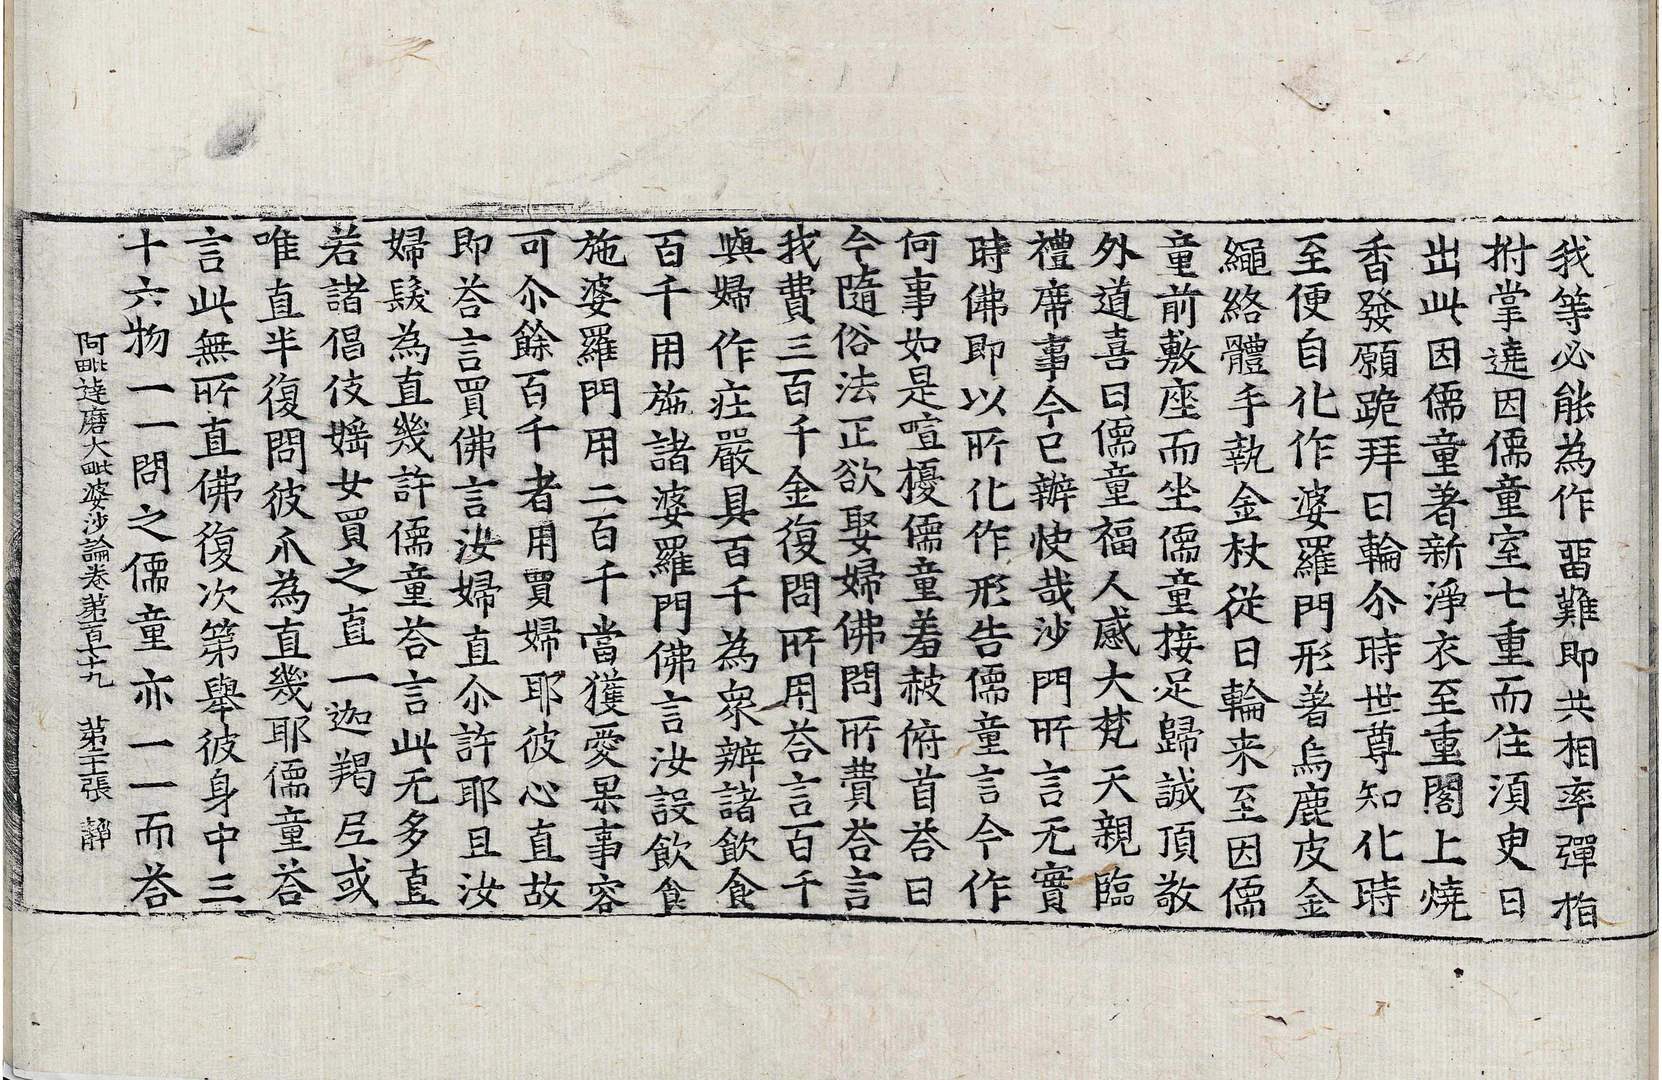 我等必能為作畱難即共相率彈指
拊掌遶因儒童室七重而住湏臾日
出此因儒童著新淨衣至重閣上燒
香發願跪拜日輪尒時世尊知化時
至便自化作婆羅門形著烏鹿皮金
繩絡體手執金杖從日輪来至因儒
童前敷座而坐儒童接足歸誠頂敬
外道喜曰儒童福人感大梵天親臨
禮席事今已辦快哉沙門所言无實
時佛即以所化作形告儒童言今作
何事如是喧擾儒童羞赧俯首荅曰
今隨俗法正欲娶婦佛問所費荅言
我費三百千金復問所用荅言百千
與婦作莊嚴具百千為衆辦諸飲食
百千用施諸婆羅門佛言汝設飲食
施婆羅門用二百千當獲愛果事容
可尒餘百千者用買婦耶彼心直故
即荅言買佛言汝婦直尒許耶且汝
婦髮為直幾許儒童荅言此无多直
若諸倡伎婬女買之直一迦羯𡊮或
唯直半復問彼爪為直幾耶儒童荅
言此無所直佛復次第舉彼身中三
十六物一一問之儒童亦一一而荅
阿毗達磨大毗婆沙論卷第百七九 第二十張 靜